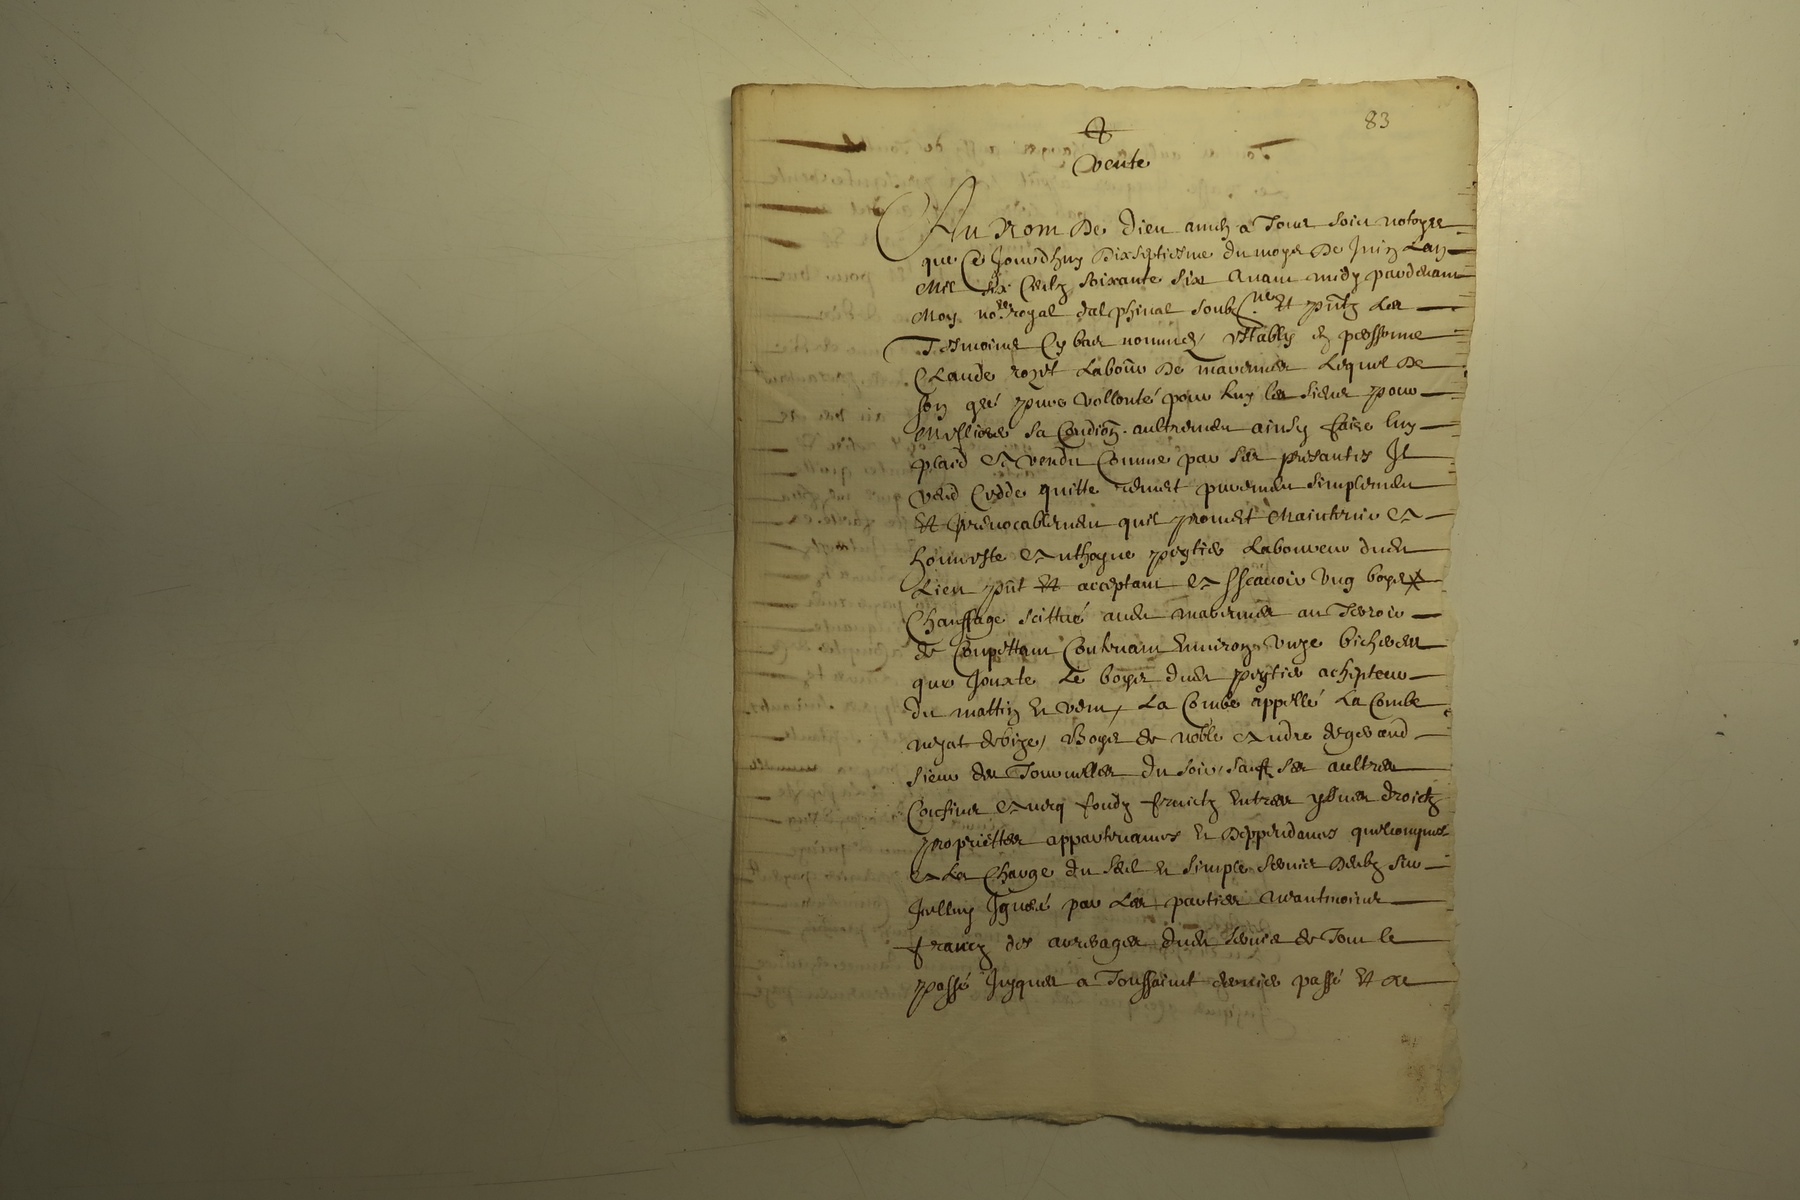 83
Vente
Au Nom de Dieu amen a Tous soict notoyre
que Ce Jourdhuy Dixseptiesme du moys de Juin Lan
Mil six Centz soixante six Avant midy pardevant
Moy nore royal dalphinal soubzne et pntz Les
Tesmoins Cy bas nommes, establys en personne
Claude rozet Labour de mavernier Lequel de
son gré pure vollonté pour luy les siens pour
Melliorer sa Condion aultrement ainsy faire luy
plaid A vendu Comme par Ses presantes Il
vend Cedde quitte remet purement simplement
et Irrevocablement quil promet Maintenir A
honneste Anthoyne peytier Laboureur dudt
Lieu pnt et acceptant A Sscavoir Ung boys
Chauffage scittué audt mavernier au Terroir
de Coupettant Contenant Environ Unze bicherees
que Jouxte Le boys dudt peytier achepteur
du mattin et vent, La Combe appellé La Combe
negat debize, Boys de noble Andre degerand
sieur des Tournelles du soir, sauf ses aultres
Confins Avecq fondz fruictz entrees yssues droictz
proprietter appartenances et deppendances quelconques
A La Charge du seul et simple service deubz sur
Icelluy Ignoré par Les parties neantmoins
francz des arreages dudt service de Tout le
passé Jusques a Toussainct dernier passé et de